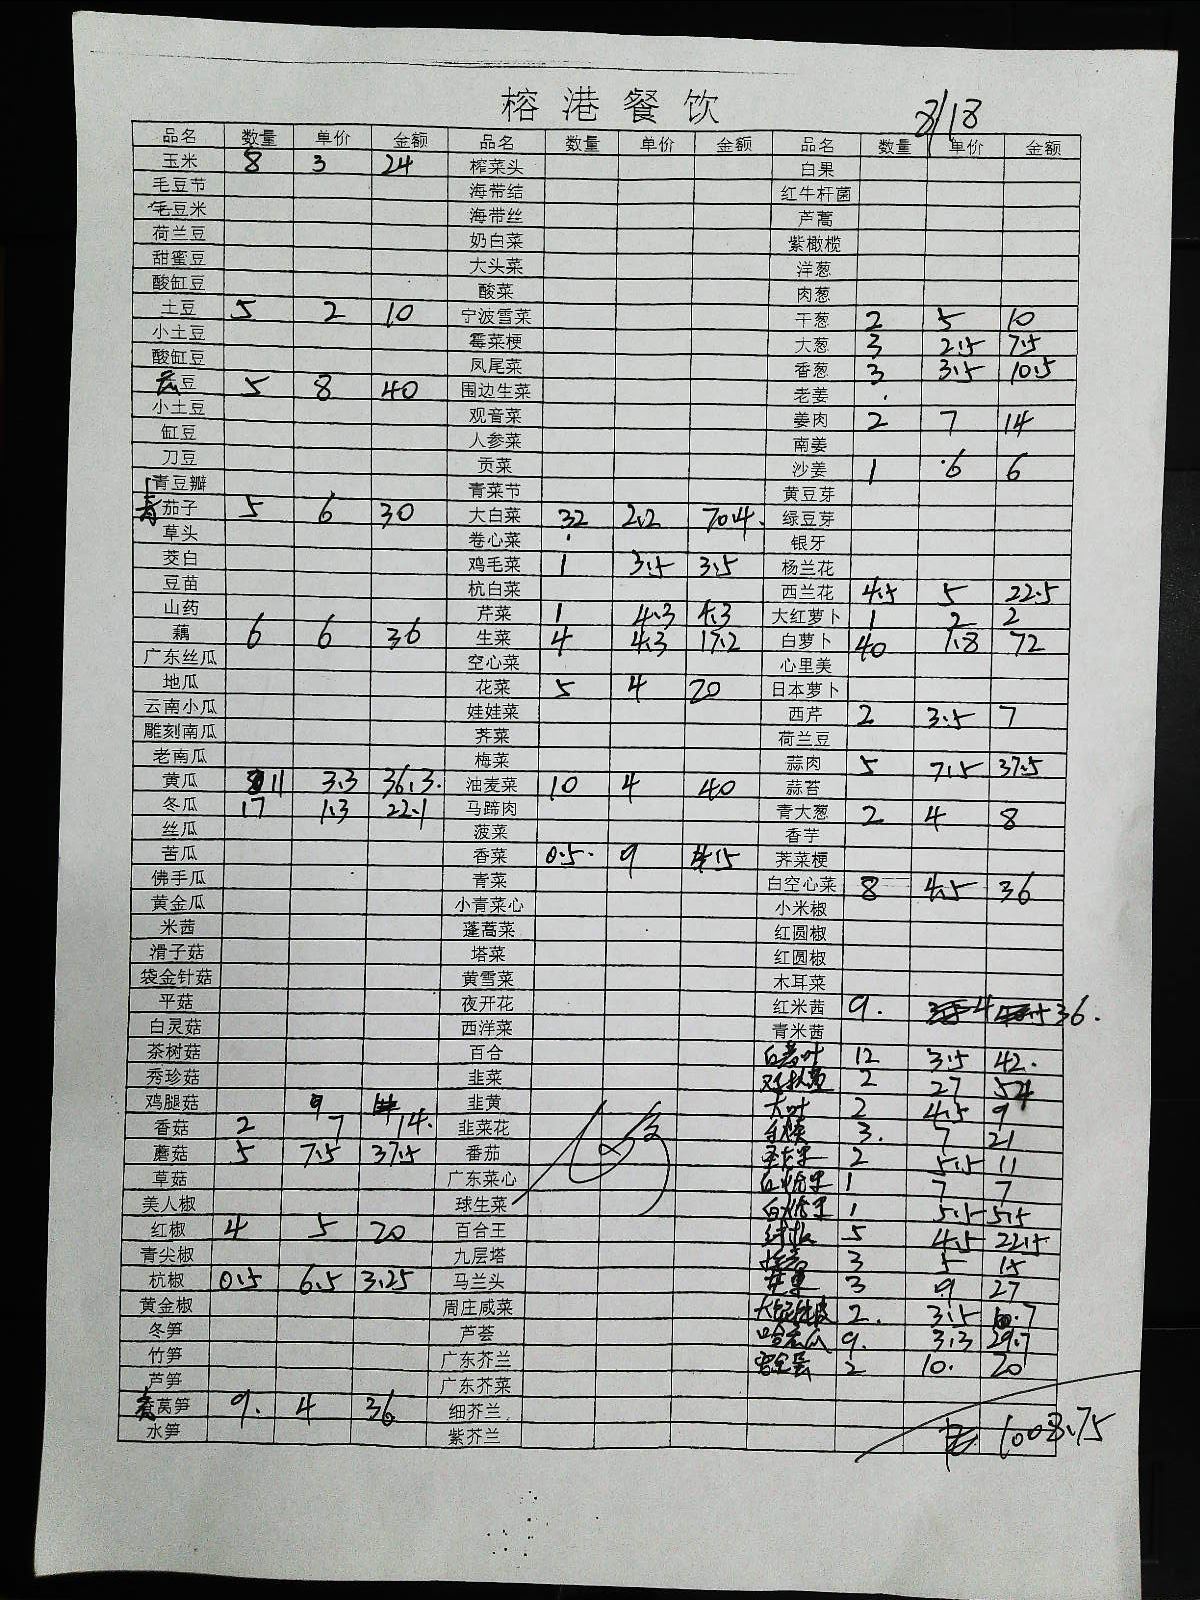 榕港餐饮
8/18
品名 数量 单价 金额 品名 数量 单价 金额 品名 数量 单价 金额
玉米 8 3 24 榨菜头 白果
毛豆节 海带结 红牛杆菌
毛豆米 海带丝 芦蒿
荷兰豆 奶白菜 紫橄榄
甜蜜豆 大头菜 洋葱
酸缸豆 酸菜 肉葱
土豆 5 2 10 宁波雪菜 干葱 2 5 10
小土豆 霉菜梗 大葱 3 2.5 7.5
酸缸豆 凤尾菜 香葱 3 3.5 10.5
云豆 5 8 40 围边生菜 老姜
小土豆 观音菜 姜肉 2 7 14
缸豆 人参菜 南姜
刀豆 贡菜 沙姜 1 6 6
青豆瓣 青菜节 黄豆芽
青茄子 5 6 30 大白菜 32 2.2 70.4 绿豆芽
草头 卷心菜 银牙
茭白 鸡毛菜 1 3.5 3.5 杨兰花
豆苗 杭白菜 西兰花 4.5 5 22.5
山药 芹菜 1 4.3 4.3 大红萝卜 1 2 2
藕 6 6 36 生菜 4 4.3 17.2 白萝卜 40 1.8 72
广东丝瓜 空心菜 心里美
地瓜 花菜 5 4 20 日本萝卜
云南小瓜 娃娃菜 西芹 2 3.5 7
雕刻南瓜 荠菜 荷兰豆
老南瓜 梅菜 蒜肉 5 7.5 37.5
黄瓜 11 3.3 36.3 油麦菜 10 4 40 蒜苔
冬瓜 17 1.3 22.1 马蹄肉 青大葱 2 4 8
丝瓜 菠菜 香芋
苦瓜 香菜 0.5 9 4.5 荠菜梗
佛手瓜 青菜 白空心菜 8 4.5 36
黄金瓜 小青菜心 小米椒
米茜 蓬蒿菜 红圆椒
滑子菇 塔菜 红圆椒
袋金针菇 黄雪菜 木耳菜
平菇 夜开花 红米茜 9. 4 36.
白灵菇 西洋菜 青米茜
茶树菇 百合 12 3.5 42.
秀珍菇 韭菜 2 27 54
鸡腿菇 韭黄 大叶 2 4.5 9
香菇 2 7 14. 韭菜花 3. 7 21
蘑菇 5 7.5 37.5 番茄 2 5.5 11
草菇 广东菜心 1 7 7
美人椒 球生菜 1 5.5 5.5
红椒 4 5 20 百合王 5 4.5 22.5
青尖椒 九层塔 3 5 15
杭椒 0.5 6.5 3.25 马兰头 苹果 3 9 27
黄金椒 周庄咸菜 2. 3.5 7
冬笋 芦荟 哈密瓜 9. 3.3 29.7
竹笋 广东芥兰 2 10. 20
芦笋 广东芥菜
莴笋 9. 4 36 细芥兰
水笋 紫芥兰
1008.75